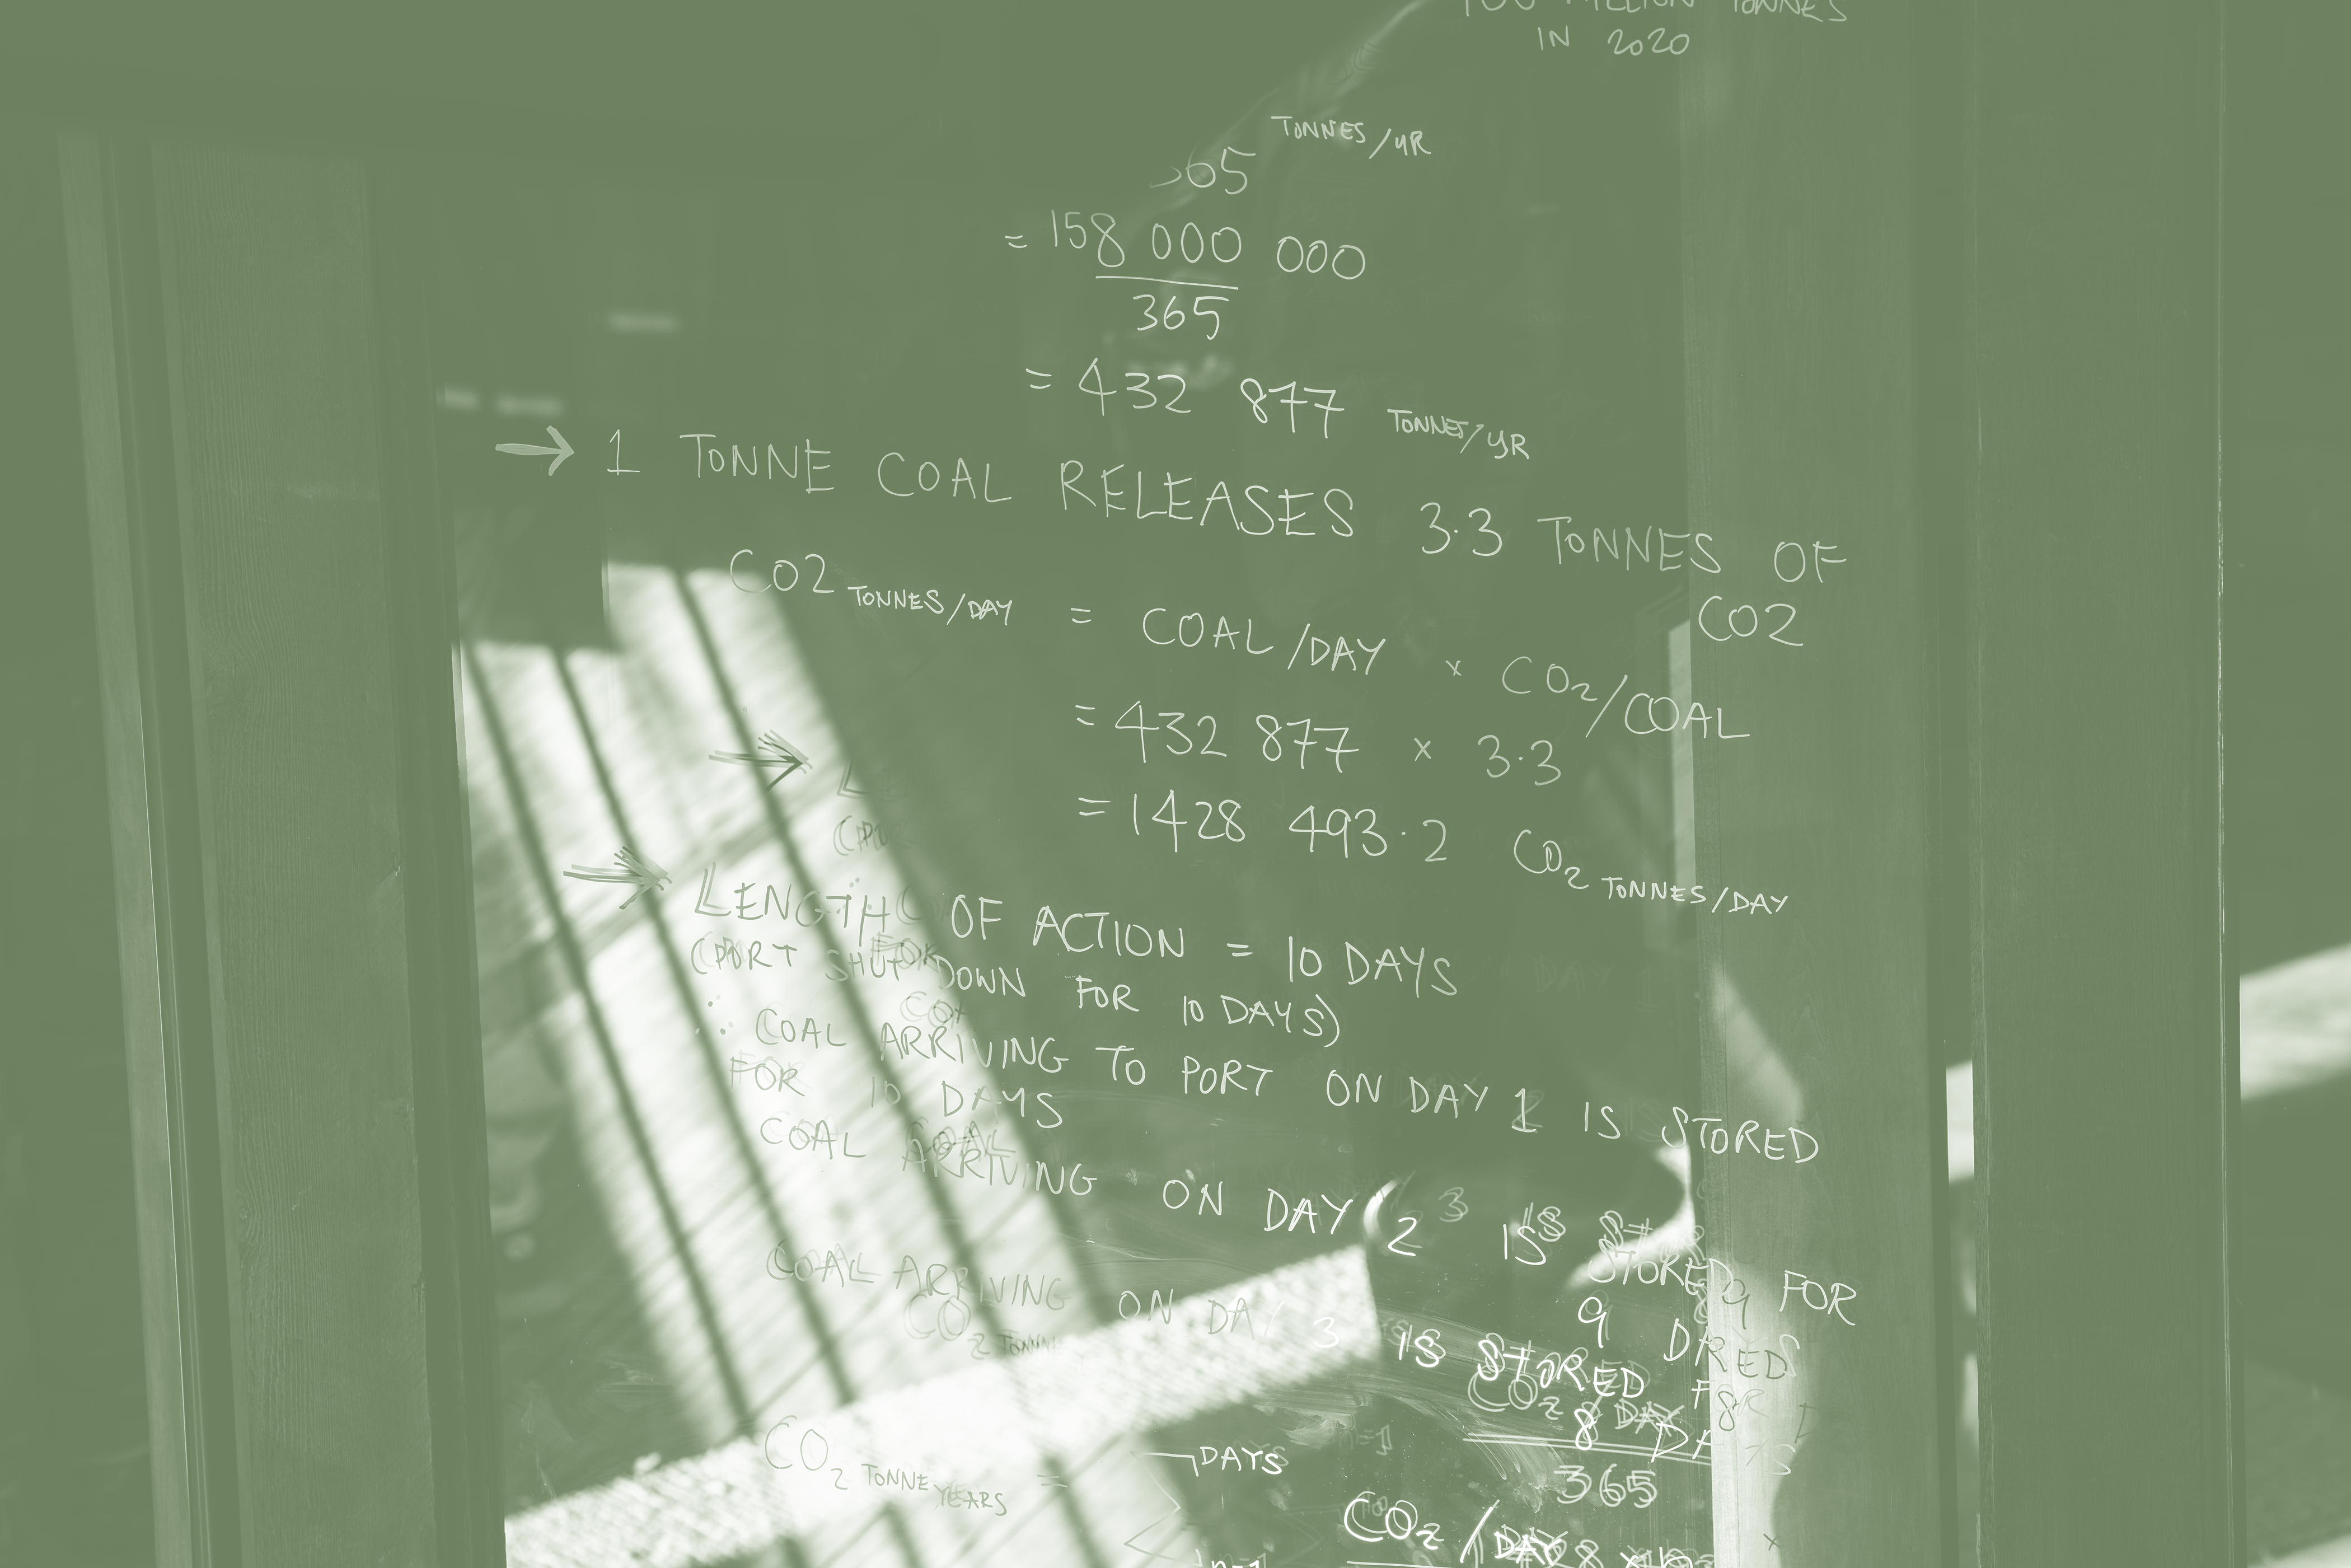 MILLION TONNES
IN 2020
TONNES/YR
365
= 158 000 000
365
= 432 877 TONNES/YR
→ 1 TONNE COAL RELEASES 3.3 TONNES OF
CO2
CO2 TONNES/DAY = COAL/DAY × CO2/COAL
= 432 877 × 3.3
= 1428 493.2 CO2 TONNES/DAY
→ LENGTH OF ACTION = 10 DAYS
(PORT SHUT DOWN FOR 10 DAYS)
∴ COAL ARRIVING TO PORT ON DAY 1 IS STORED
FOR 10 DAYS
COAL ARRIVING ON DAY 2 IS STORED FOR
9
COAL ARRIVING ON DAY 3 IS STORED
8
CO2 TONNE YEARS =
DAYS
365
CO2/DAY
n=1